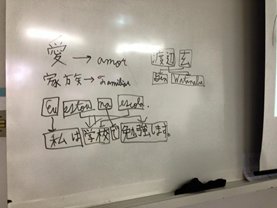 愛 → amor
家族 → familia
渡辺
Watanabe
Eu estou na escola.
私は学校で勉強します。